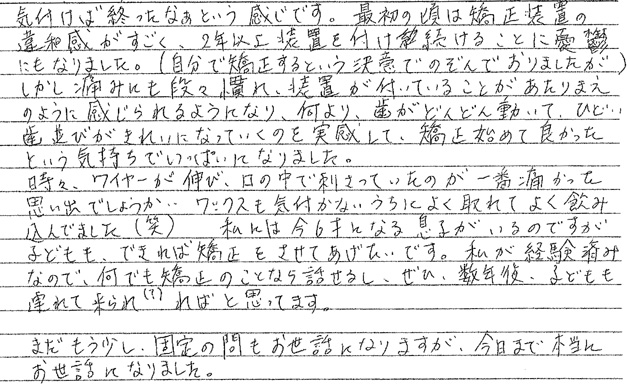 気付けば終ったなぁという感じです。最初の頃は矯正装置の
違和感がすごく、2年以上装置を付け続けることに憂鬱
にもなりました。(自分で矯正するという決意でのぞんでおりましたが)
しかし痛みにも段々慣れ、装置が付いていることがあたりまえ
のように感じられるようになり、何より、歯がどんどん動いて、ひどい
歯並びがきれいになっていくのを実感して、矯正始めて良かった
という気持ちでいっぱいになりました。
時々、ワイヤーが伸び、口の中で刺さっていたのが一番痛かった
思い出でしょうか‥ワックスも気付かないうちによく取れてよく飲み
込んでました(笑) 私には今6才になる息子がいるのですが
子どもも、できれば矯正をさせてあげたいです。私が経験済み
なので、何でも矯正のことなら話せるし、ぜひ、数年後、子どもも
連れて来られ(?)ればと思ってます。
まだもう少し、固定の間もお世話になりますが、今日まで本当に
お世話になりました。